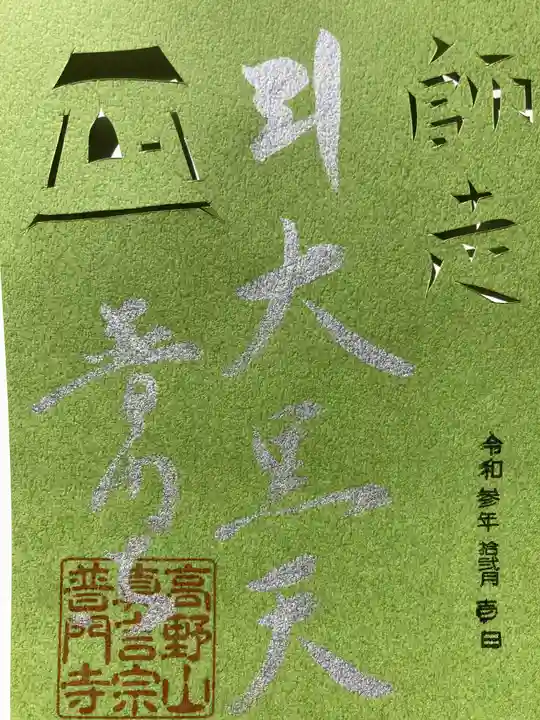 師走
大黒天
普門寺
令和参年拾弐月壱日
高野山
真言宗
普門寺